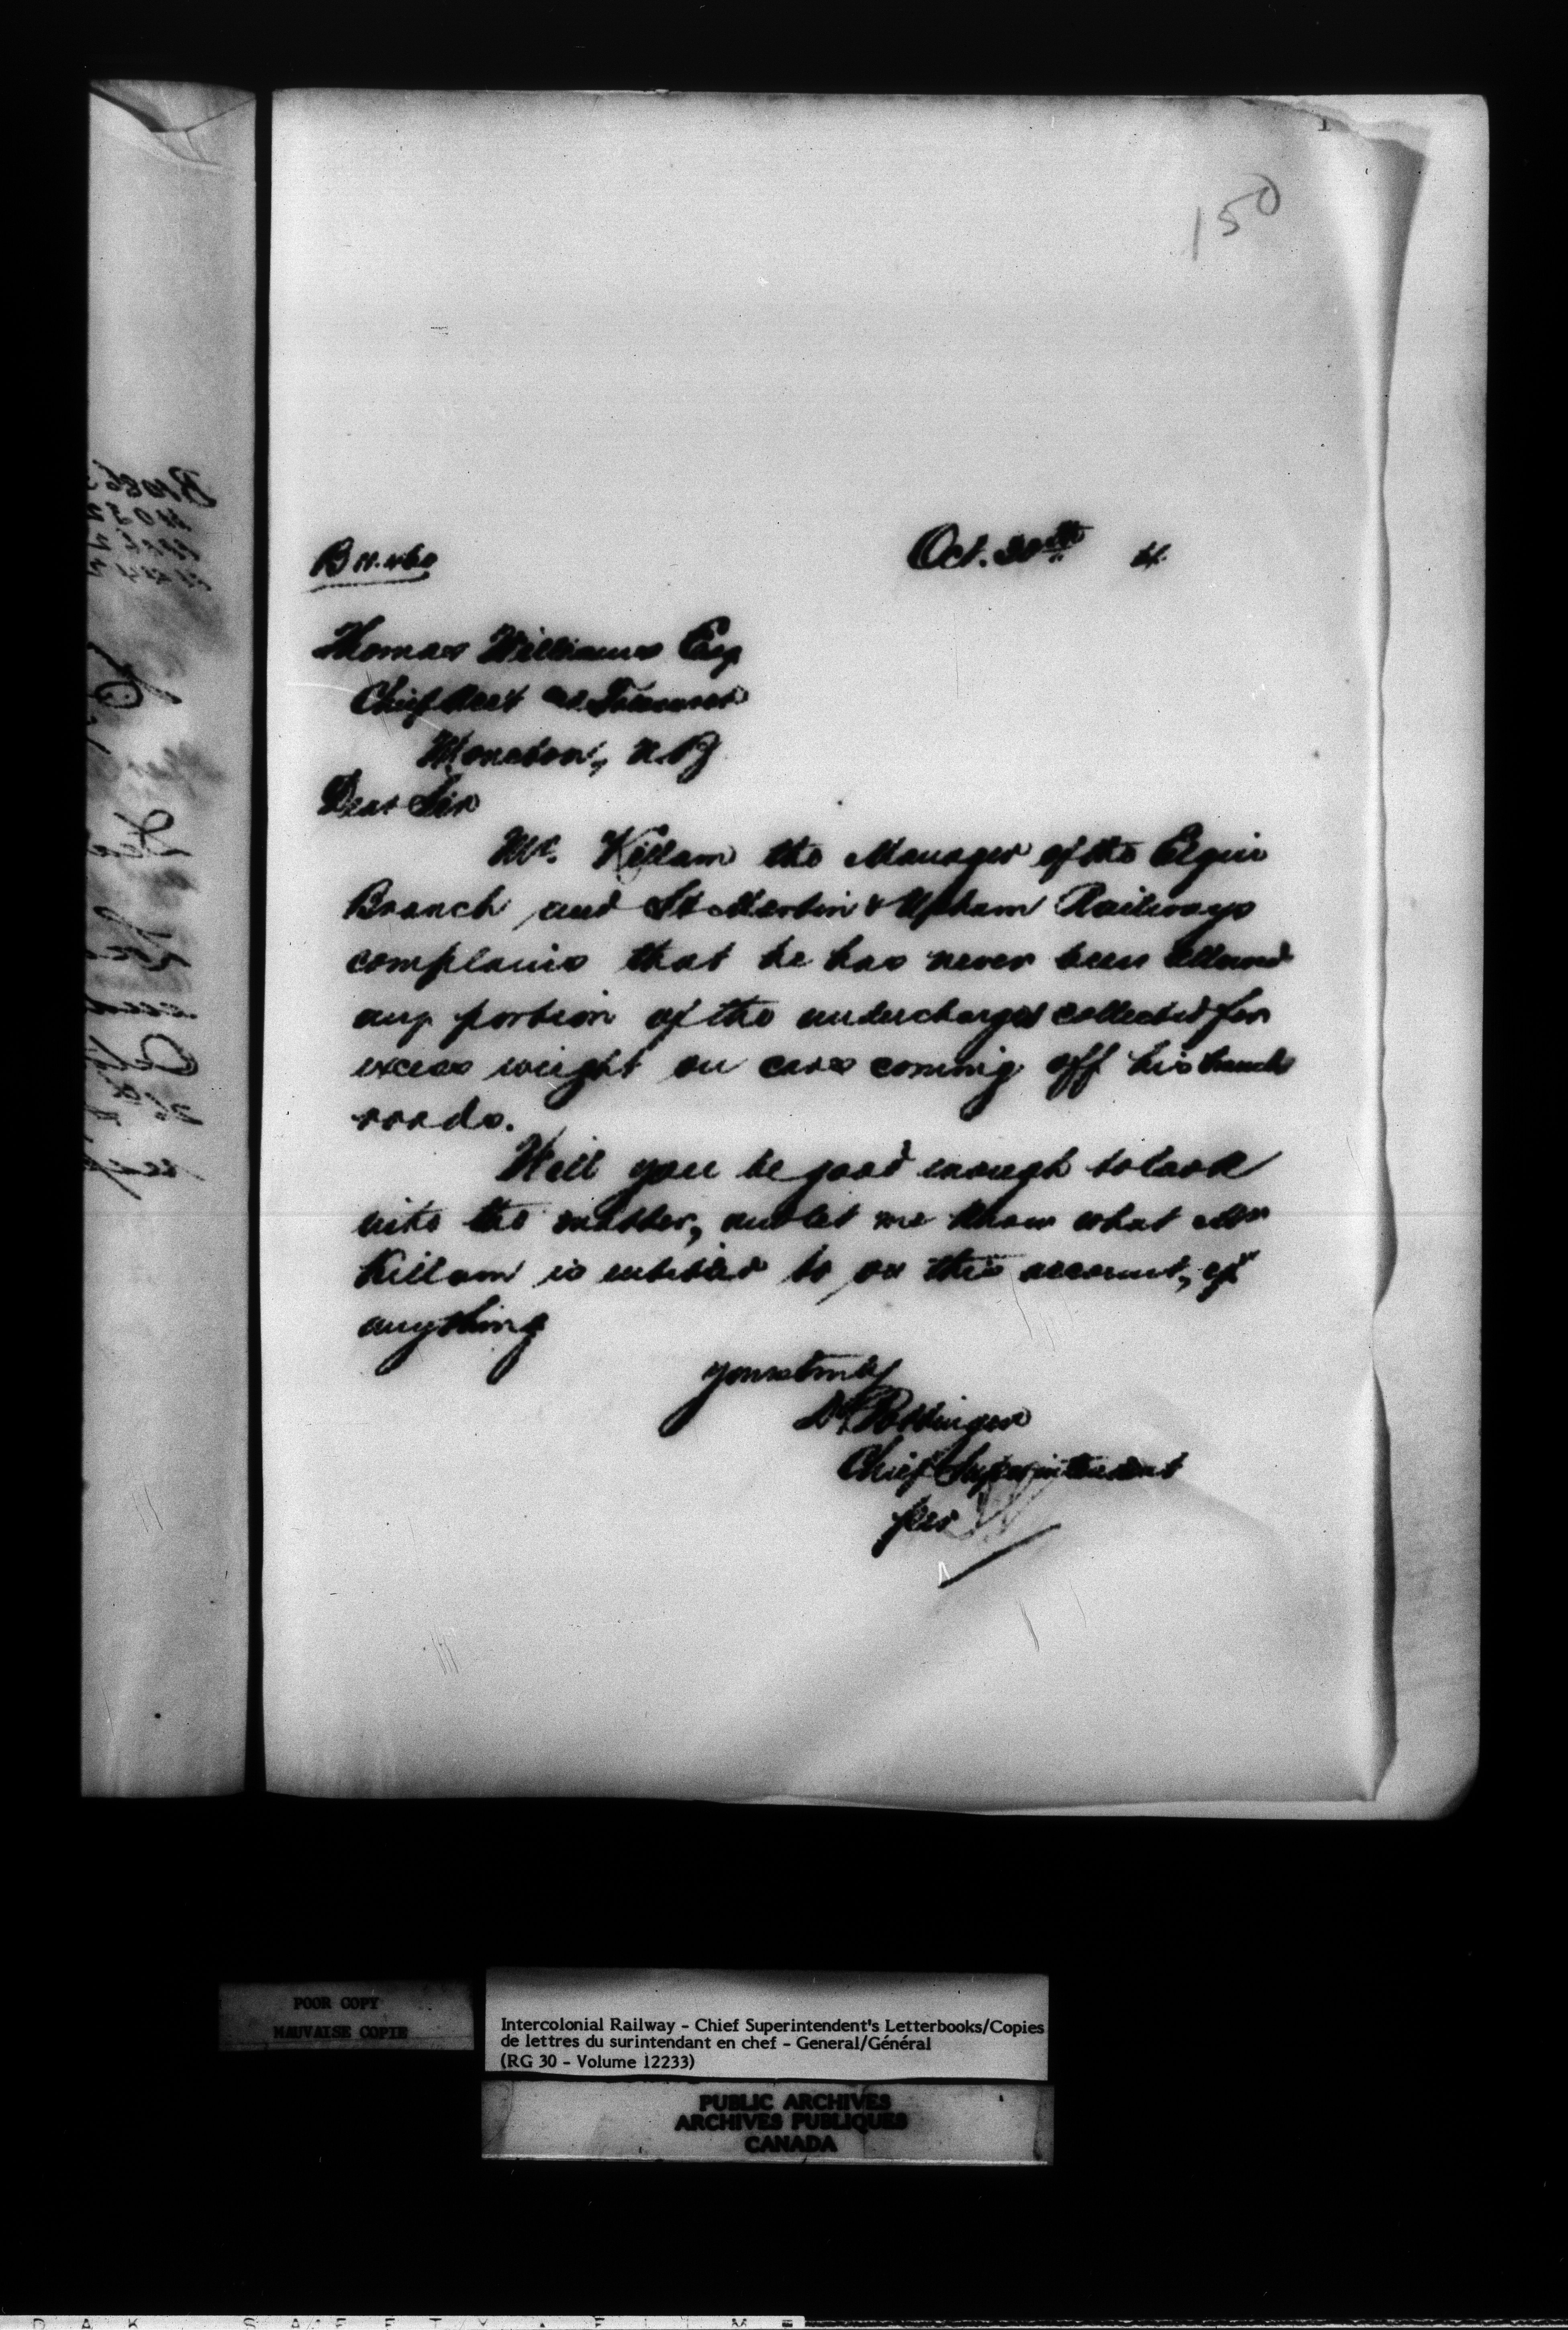 150
Oct. 30th 4.
Thomas Williams Esq
Chief Acct and Treasurer
Moncton, N.B
Dear Sir
Mr. Killam the Manager of the Elgin
Branch and St Martin & Upham Railways
complains that he has never been allowed
any portion of the undercharges collected for
excess weight on cars coming off his branch
roads.
Will you be good enough to look
into the matter, and let me know what Mr
Killam is entitled to on this account, if
anything
yours truly
D Pottinger
Chief Superintendent
per
POOR COPY
MAUVAISE COPIE
Intercolonial Railway - Chief Superintendent's Letterbooks/Copies
de lettres du surintendant en chef - General/Général
(RG 30 - Volume 12233)
PUBLIC ARCHIVES
ARCHIVES PUBLIQUES
CANADA